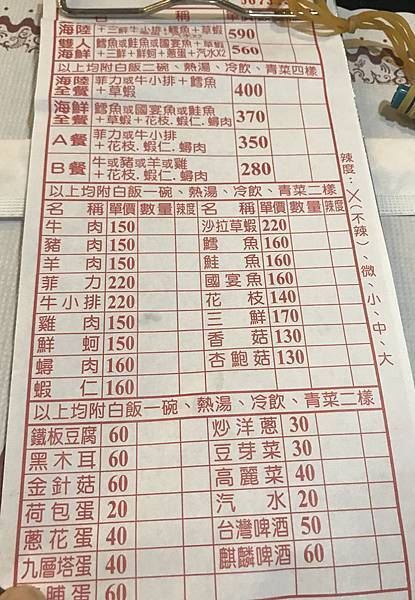 名 稱 單價
海陸 +三鮮+小排.鱈魚+草蝦 590
雙人海鮮 鱈魚或鮭魚或國宴魚+草蝦+三鮮+鮮蚵+蔥蛋+汽水X2 560
以上均附白飯二碗、熱湯、冷飲、青菜四樣
海陸全餐 菲力或牛小排+鱈魚+草蝦 400
海鮮全餐 鱈魚或國宴魚或鮭魚+草蝦+花枝.蝦仁.蟳肉 370
A餐 菲力或牛小排+花枝.蝦仁.蟳肉 350
B餐 牛或豬或羊或雞+花枝.蝦仁.蟳肉 280
以上均附白飯一碗、熱湯、冷飲、青菜二樣
名 稱 單價 數量 辣度 名 稱 單價 數量 辣度
牛 肉 150 沙拉草蝦 220
豬 肉 150 鱈 魚 160
羊 肉 150 鮭 魚 160
菲 力 220 國宴魚 160
牛小排 220 花 枝 140
雞 肉 150 三 鮮 170
鮮 蚵 150 香 菇 130
蟳 肉 160 杏鮑菇 130
蝦 仁 160
以上均附白飯一碗、熱湯、冷飲、青菜二樣
鐵板豆腐 60 炒洋蔥 30
黑木耳 60 豆芽菜 30
金針菇 60 高麗菜 40
荷包蛋 20 汽 水 20
蔥花蛋 40 台灣啤酒 50
九層塔蛋 40 麒麟啤酒 60
脯蛋 60
辣度:╳(不辣)、微、小、中、大